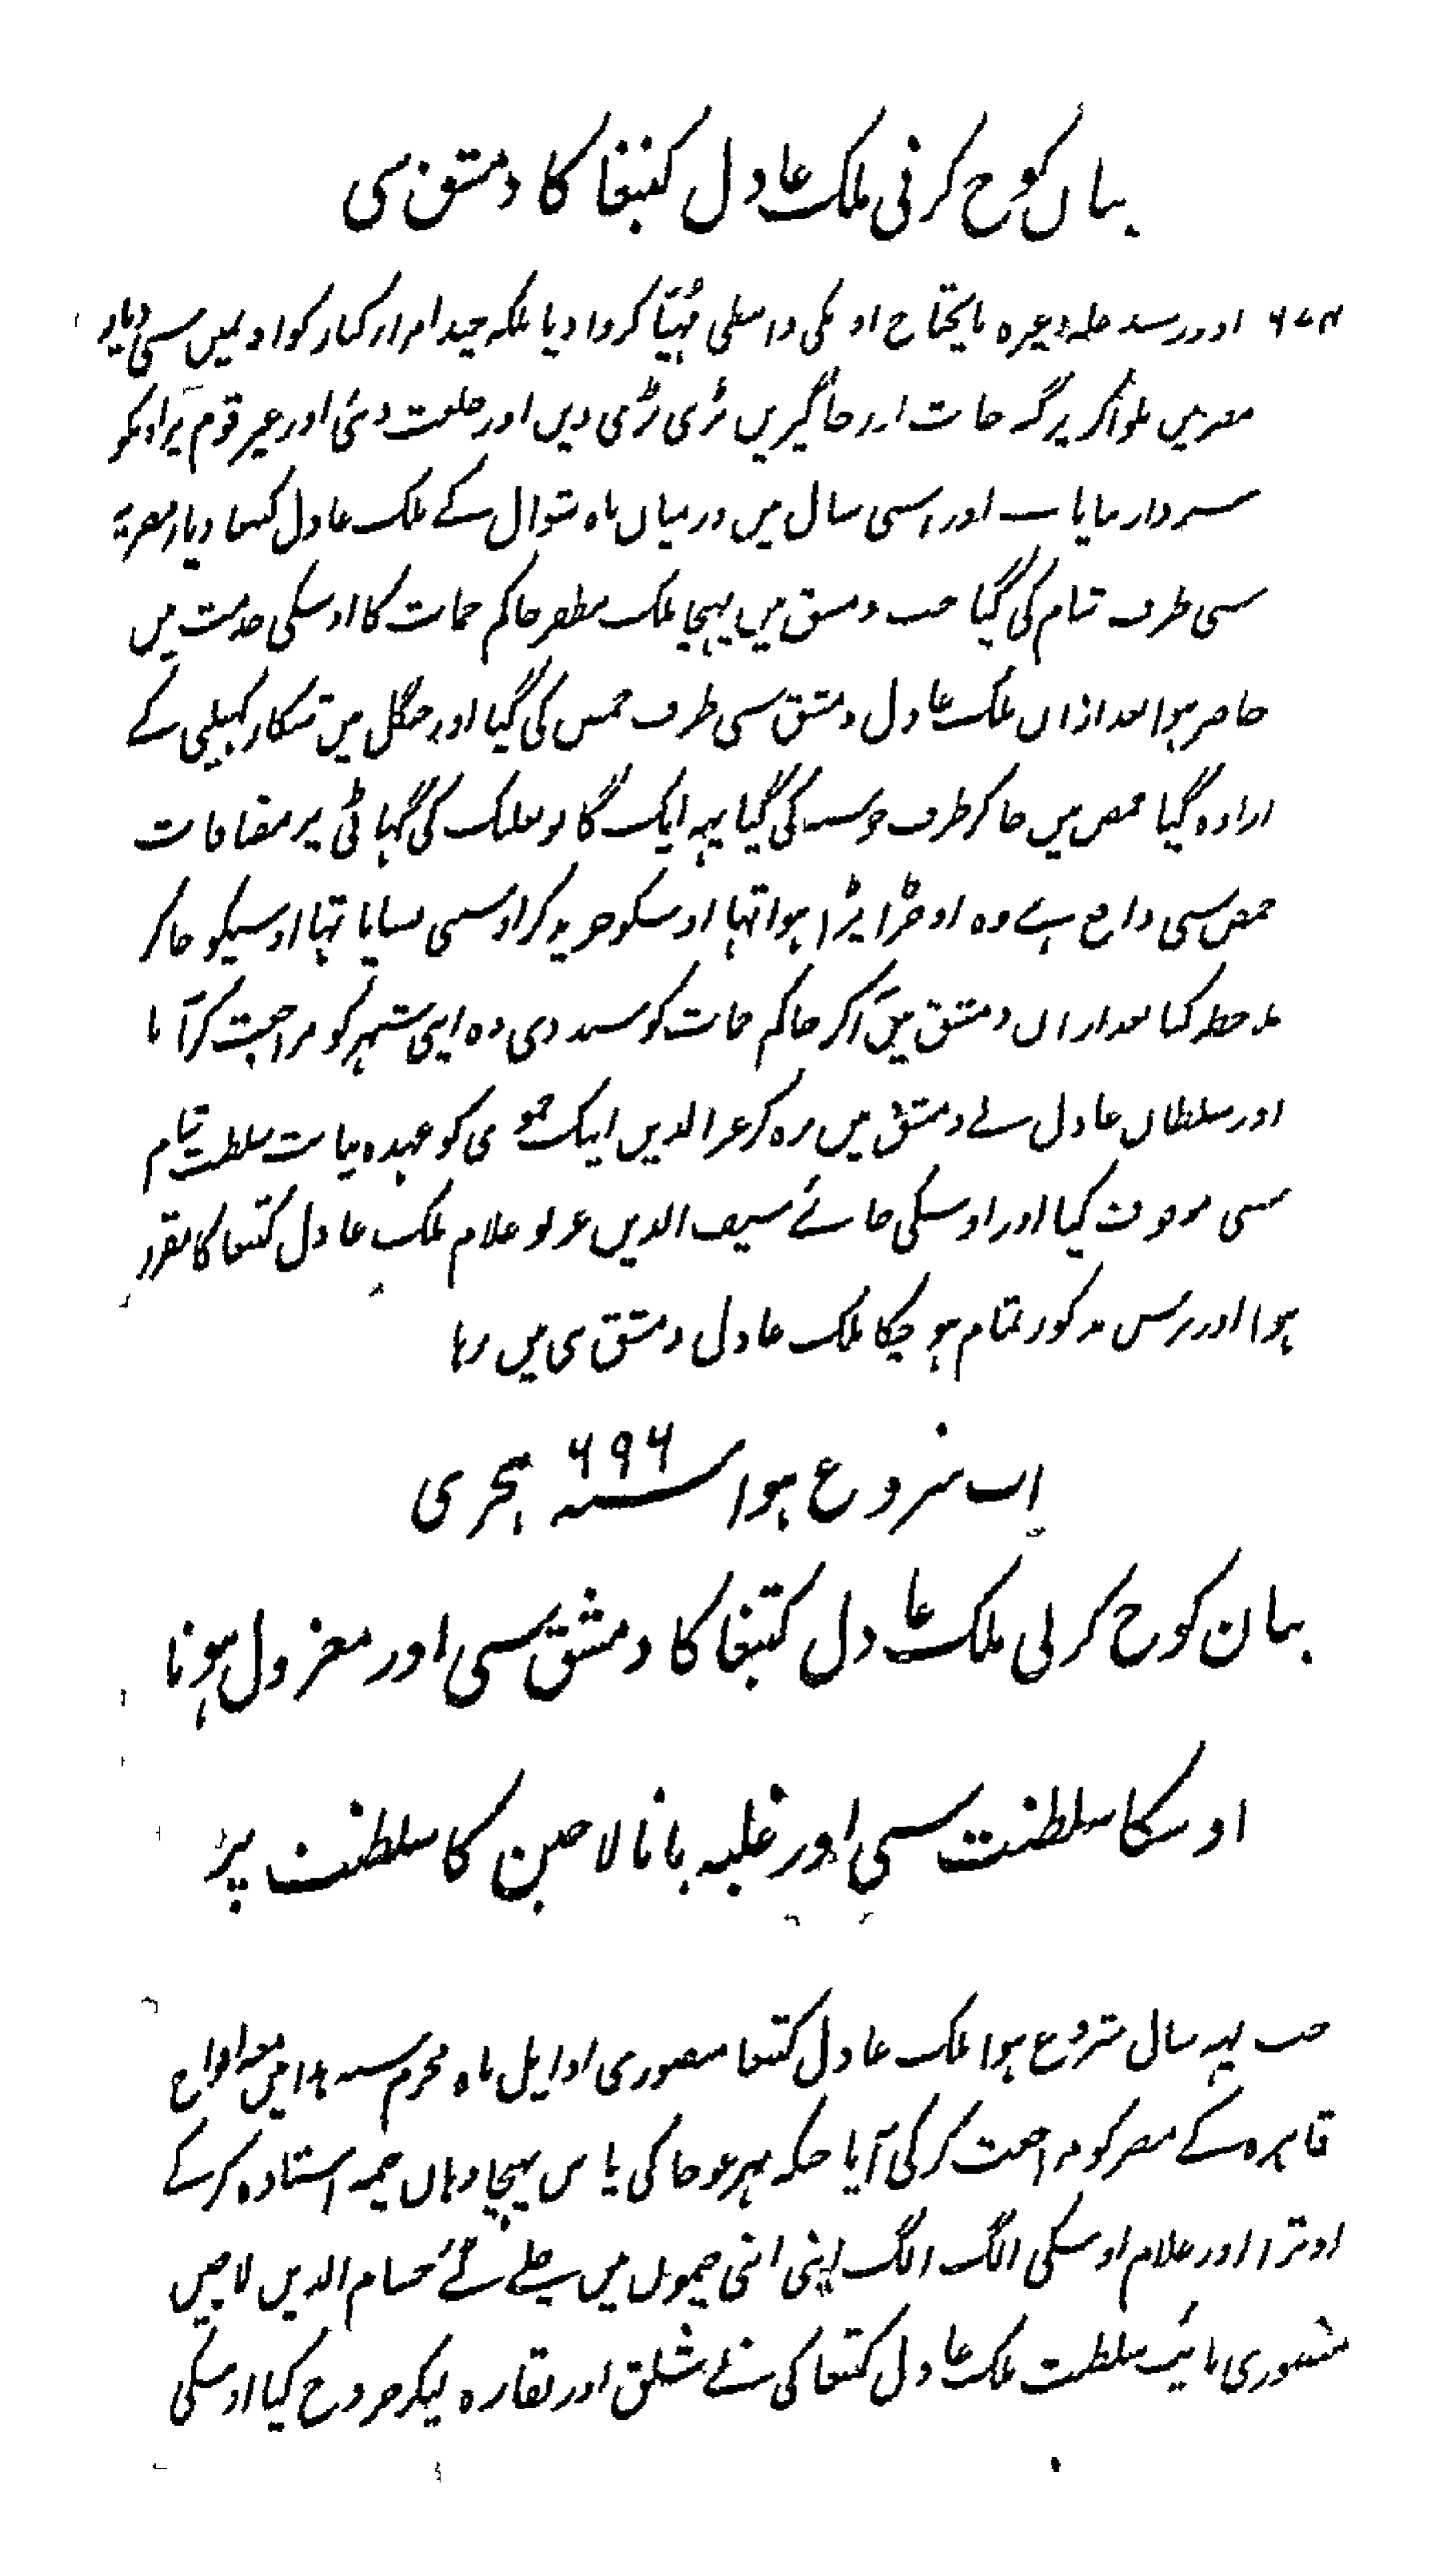 بیان کوچ کرنی ملک عادل کتبغا کا دمشق سی
۶۷۴ اور رسد غلہ وغیرہ مایحتاج اونکی واسطی مُہیّا کروا دیا بلکہ چند امرار کبار کو اونمیں سی دیار
مصر میں بلواکر پرگنہ جات اور جاگیریں بڑی بڑی دیں اور خلعت دئی اور غیر قوم پر اونکو
سردار بنایا اور اسی سال میں درمیان ماہ شوال کے ملک عادل کتبغا دیار مصریہ
سی طرف شام کی گیا جب دمشق میں پہنچا ملک مظفر حاکم حمات کا اوسکی خدمت میں
حاضر ہوا بعد ازاں ملک عادل دمشق سی طرف حمص کی گیا اور جنگل میں شکار کھیلنی کے
ارادہ گیا حمص میں جاکر طرف جوسیہ کی گیا یہہ ایک گانو بعلبک کی گہاٹی پر مضافات
حمص سی واقع ہے وہ اوجڑا پڑا ہوا تہا اوسکو خرید کر اوسی بسایا تہا اوسیکو جاکر
ملاحظہ کیا بعد ازاں دمشق میں آکر حاکم حمات کو سند دی وہ اپنی شہر کو مراجعت کر آیا
اور سلطان عادل نے دمشق میں رہ کر عزالدین ایبک حموی کو عہدہ نیابت سلطنت شام
سی موقوف کیا اور اوسکی جائے سیف الدین غرلو غلام ملک عادل کتبغا کا مقرر
ہوا اور برس مذکور تمام ہو چکا ملک عادل دمشق ہی میں رہا
اب شروع ہوا سنہ ۶۹۶ ہجری
بیان کوچ کرنی ملک عادل کتبغا کا دمشق سی اور معزول ہونا
اوسکا سلطنت سی اور غلبہ پانا لاجین کا سلطنت پر
جب یہہ سال شروع ہوا ملک عادل کتبغا منصوری اوایل ماہ محرم سنہ ہذا میں معہ افواج
قاہرہ کے مصر کو مراجعت کرکی آیا جبکہ نہر عوجا کی پاس پہنچا وہاں خیمہ استادہ کرکے
اوترا اور غلام اوسکی الگ الگ اپنی اپنی خیموں میں چلے گئے حسام الدین لاجین
منصوری نائب سلطنت ملک عادل کتبغا کی نے شلق اور نقارہ لیکر خروج کیا اوسکی